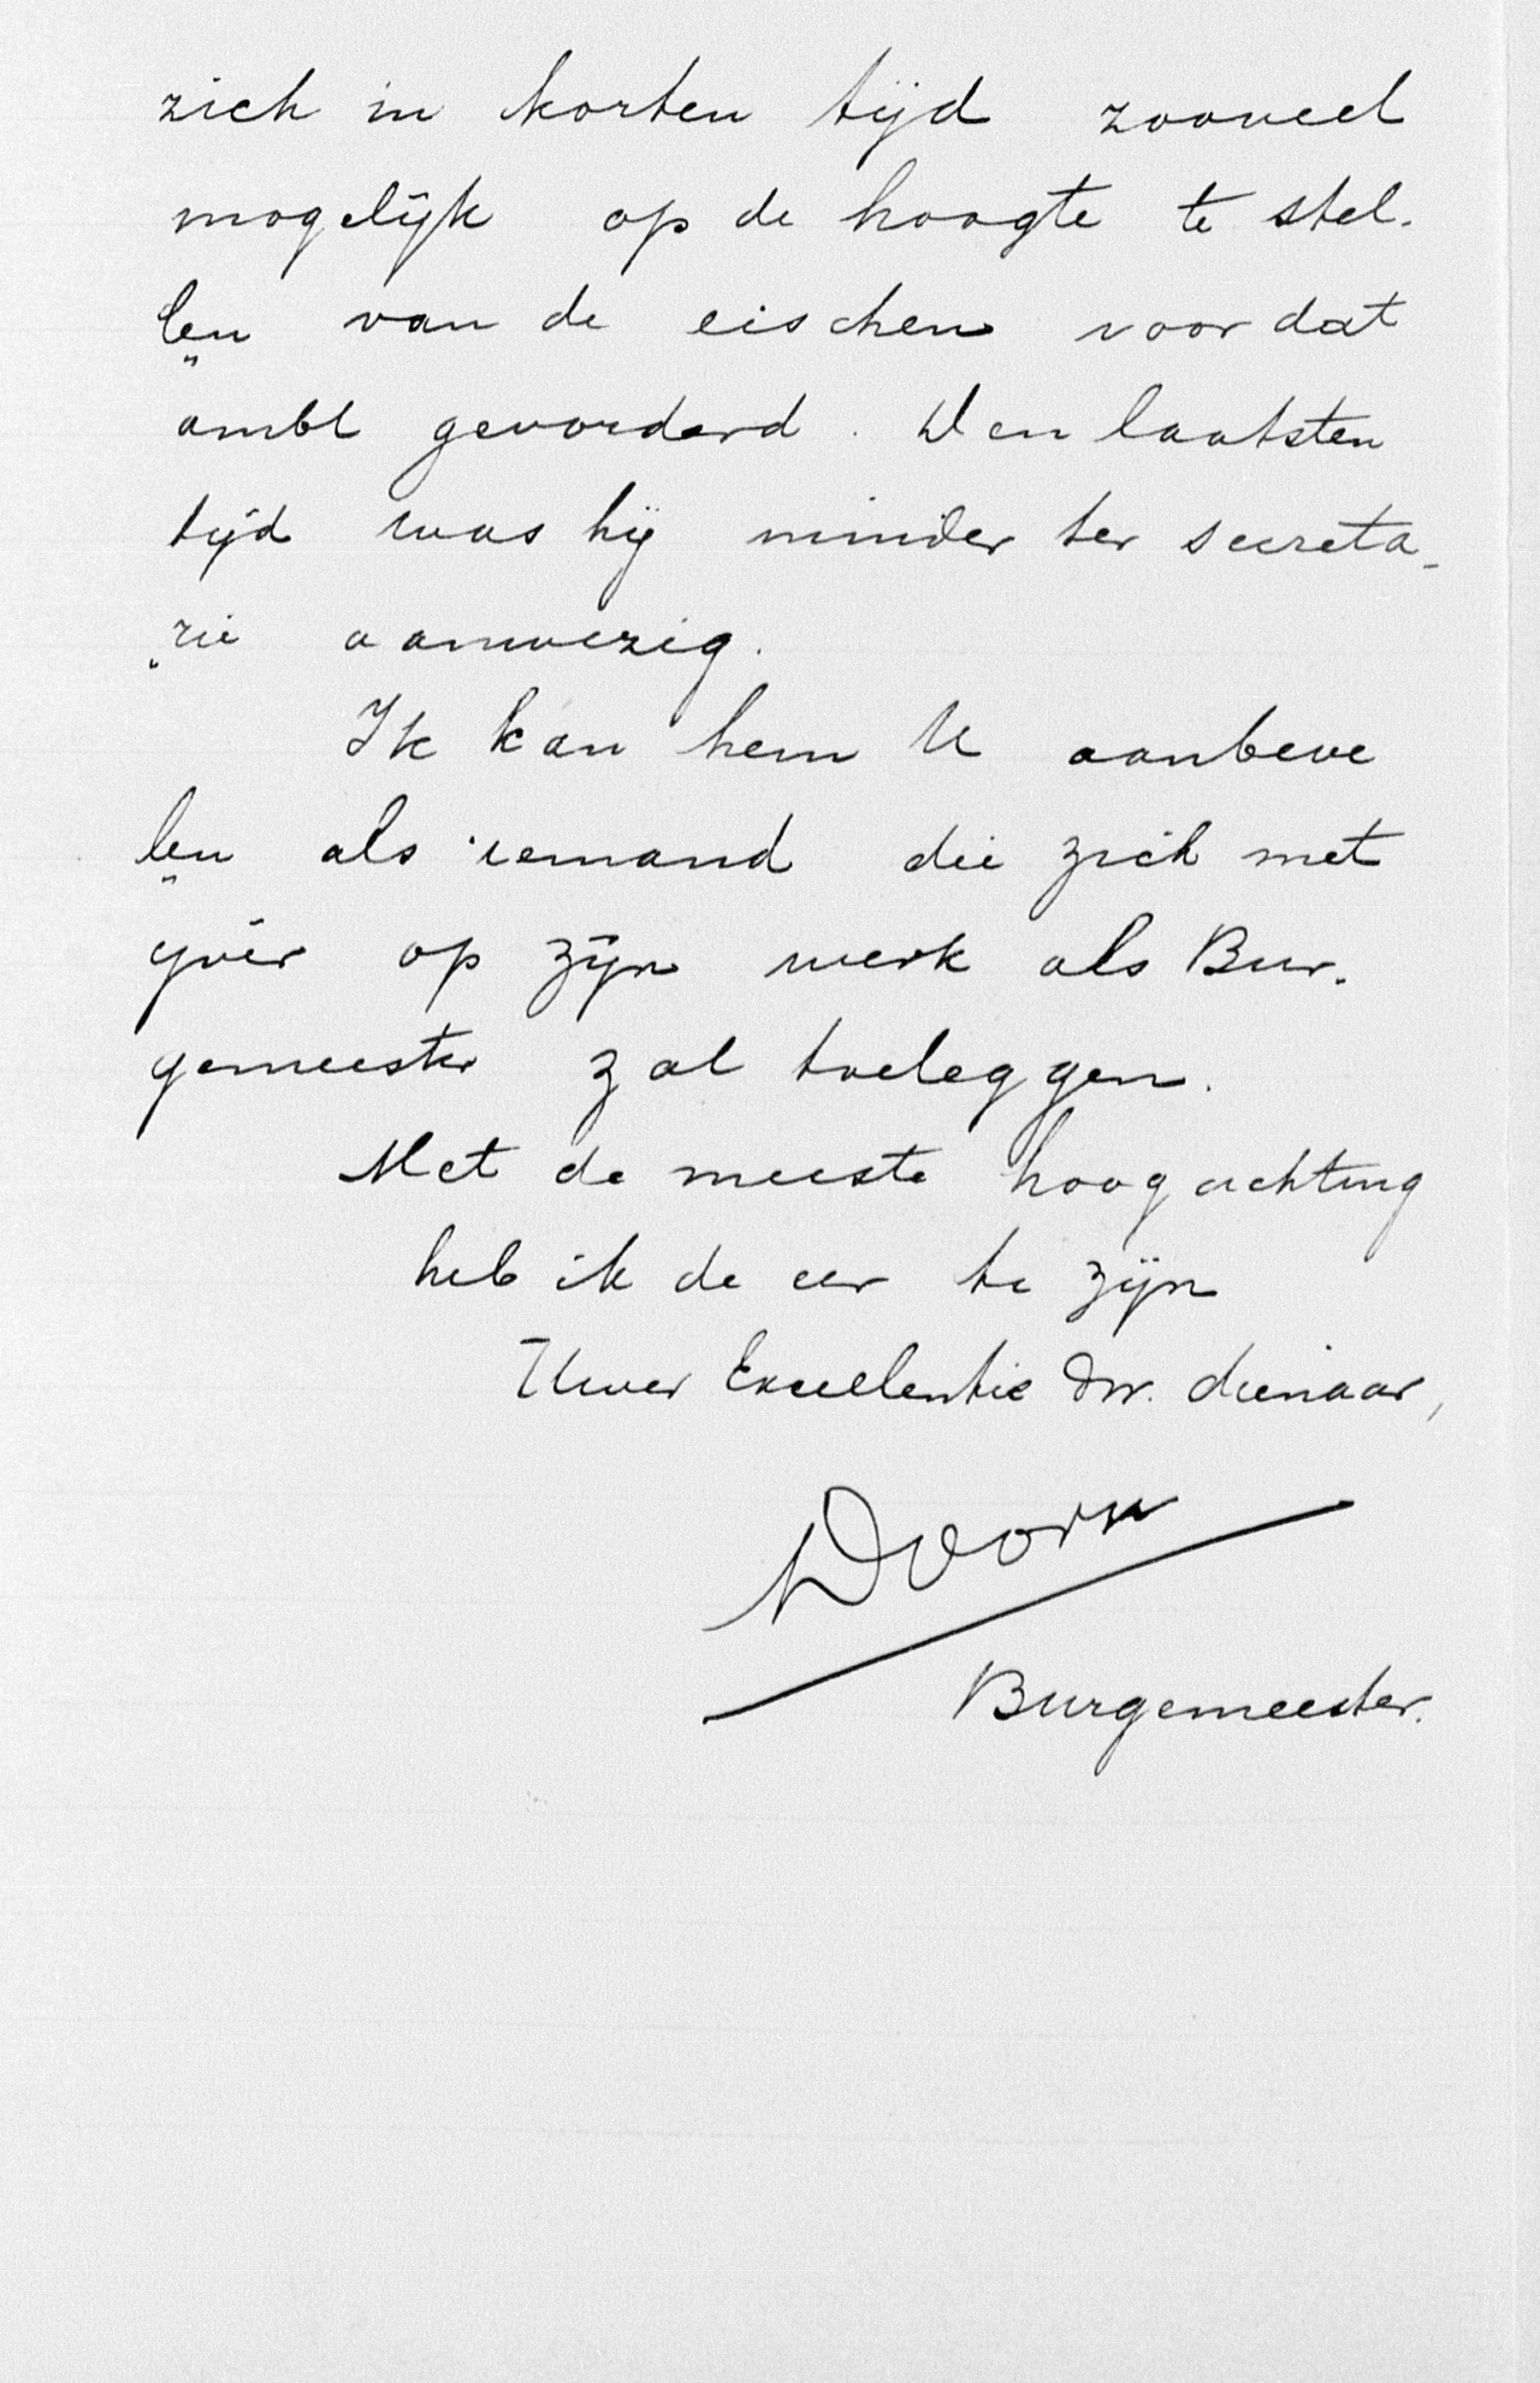 zich in korten tijd zooveel
mogelijk op de hoogte te stel-
„len van de eischen voor dat
ambt gevorderd. Den laatsten
tijd was hij minder ter secreta-
„rie aanwezig.
Ik kan hem U aanbeve
„len als iemand die zich met
ijver op zijn werk als Bur-
gemeester zal toeleggen.
Met de meeste hoogachting
heb ik de eer te zijn
Uwer Excellentie dw. dienaar,
Doorn
Burgemeester.